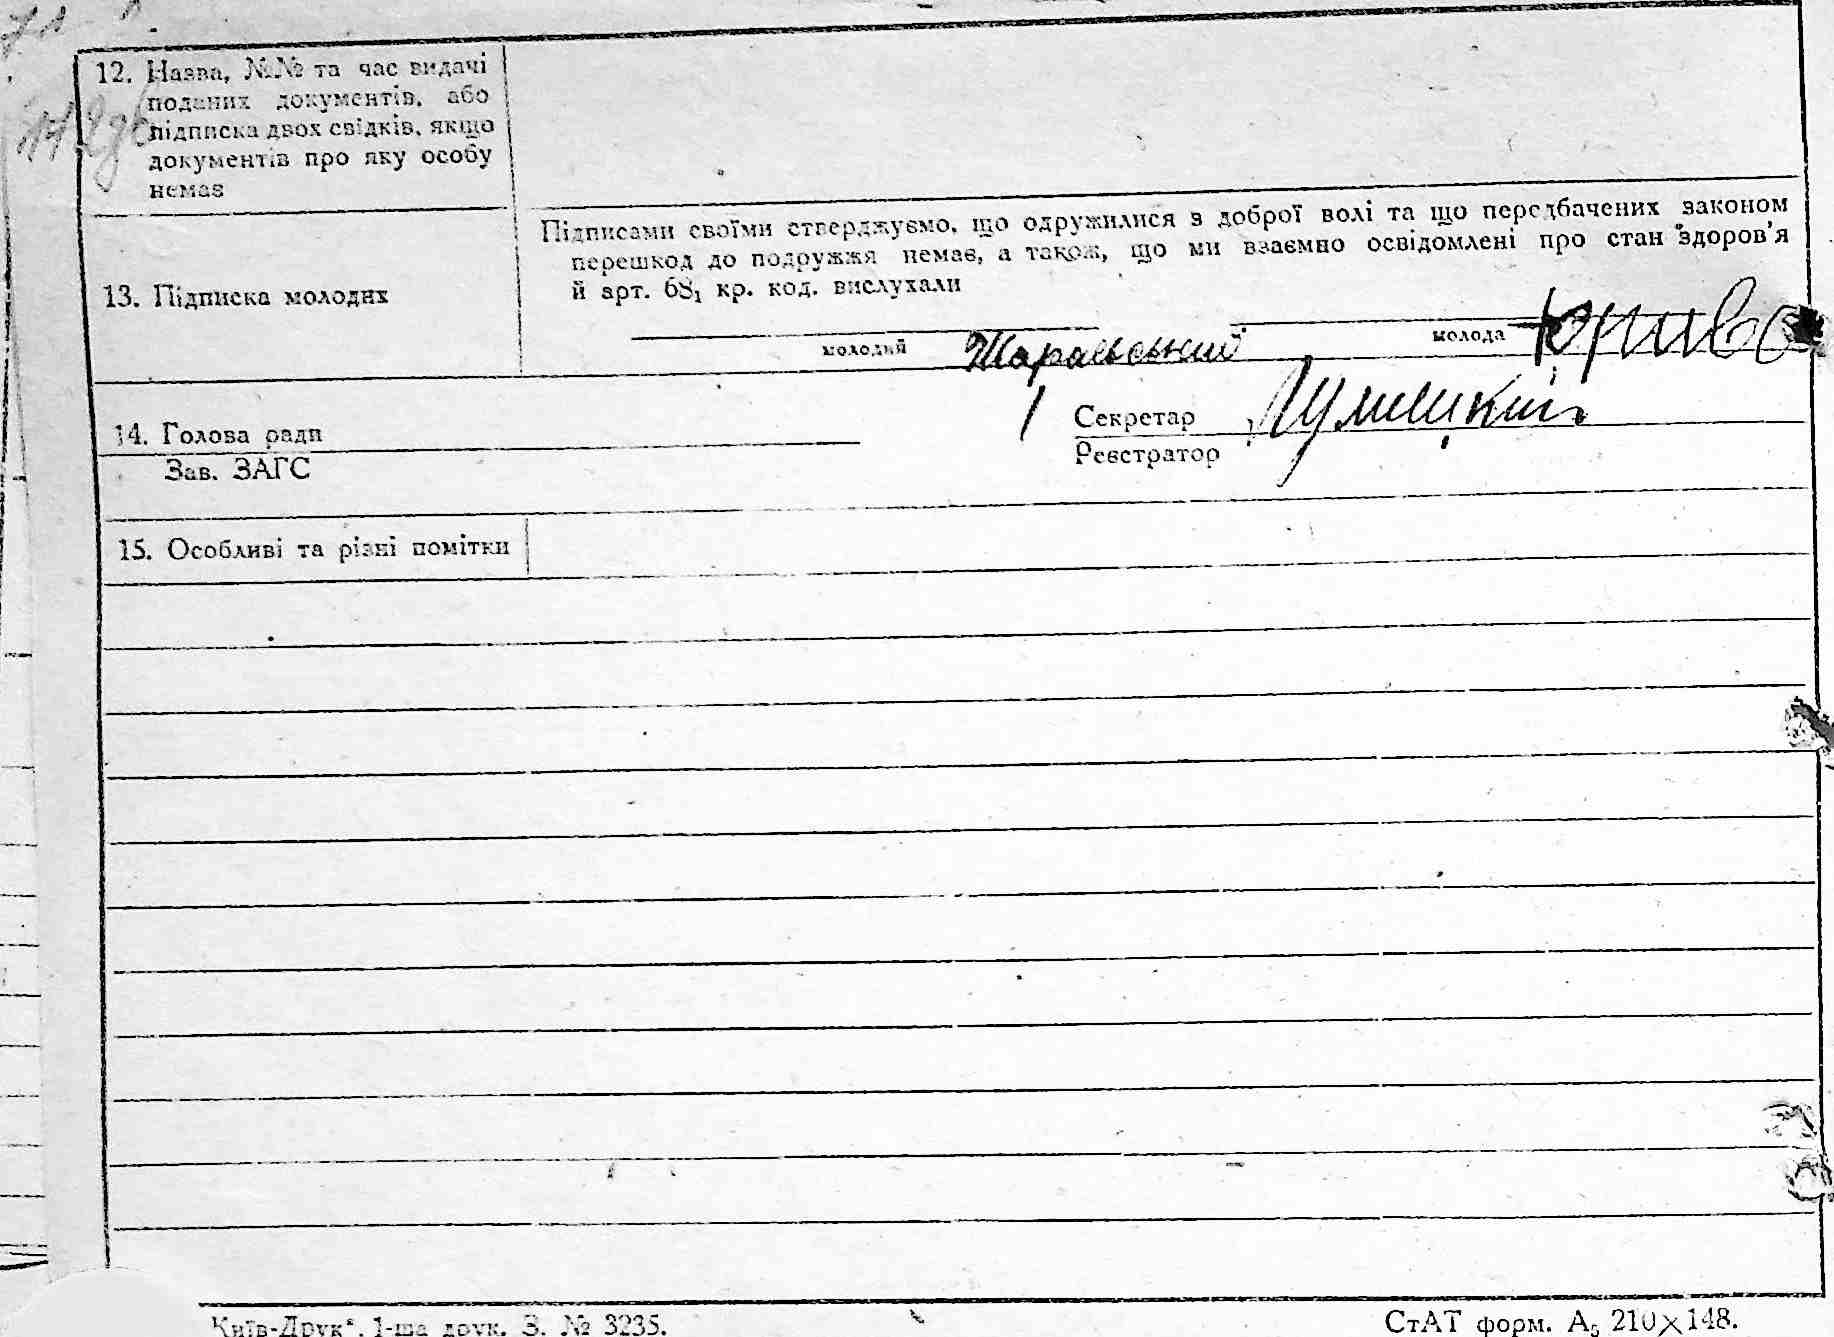 12. Назва, №№ та час видачі
поданих документів, або
підписка двох свідків, якщо
документів про яку особу
немає
Підписами своїми стверджуємо, що одружилися з доброї волі та що передбачених законом
перешкод до подружжя немає, а також, що ми взаємно освідомлені про стан здоров'я
й арт. 68₁ кр. код. вислухали
13. Підписка молодих
молодий
молода
14. Голова ради
Зав. ЗАГС
Секретар
Реєстратор
15. Особливі та різні помітки
Київ-Друк". 1-ша друк. З. № 3235.
СтАТ форм. А₅ 210×148.